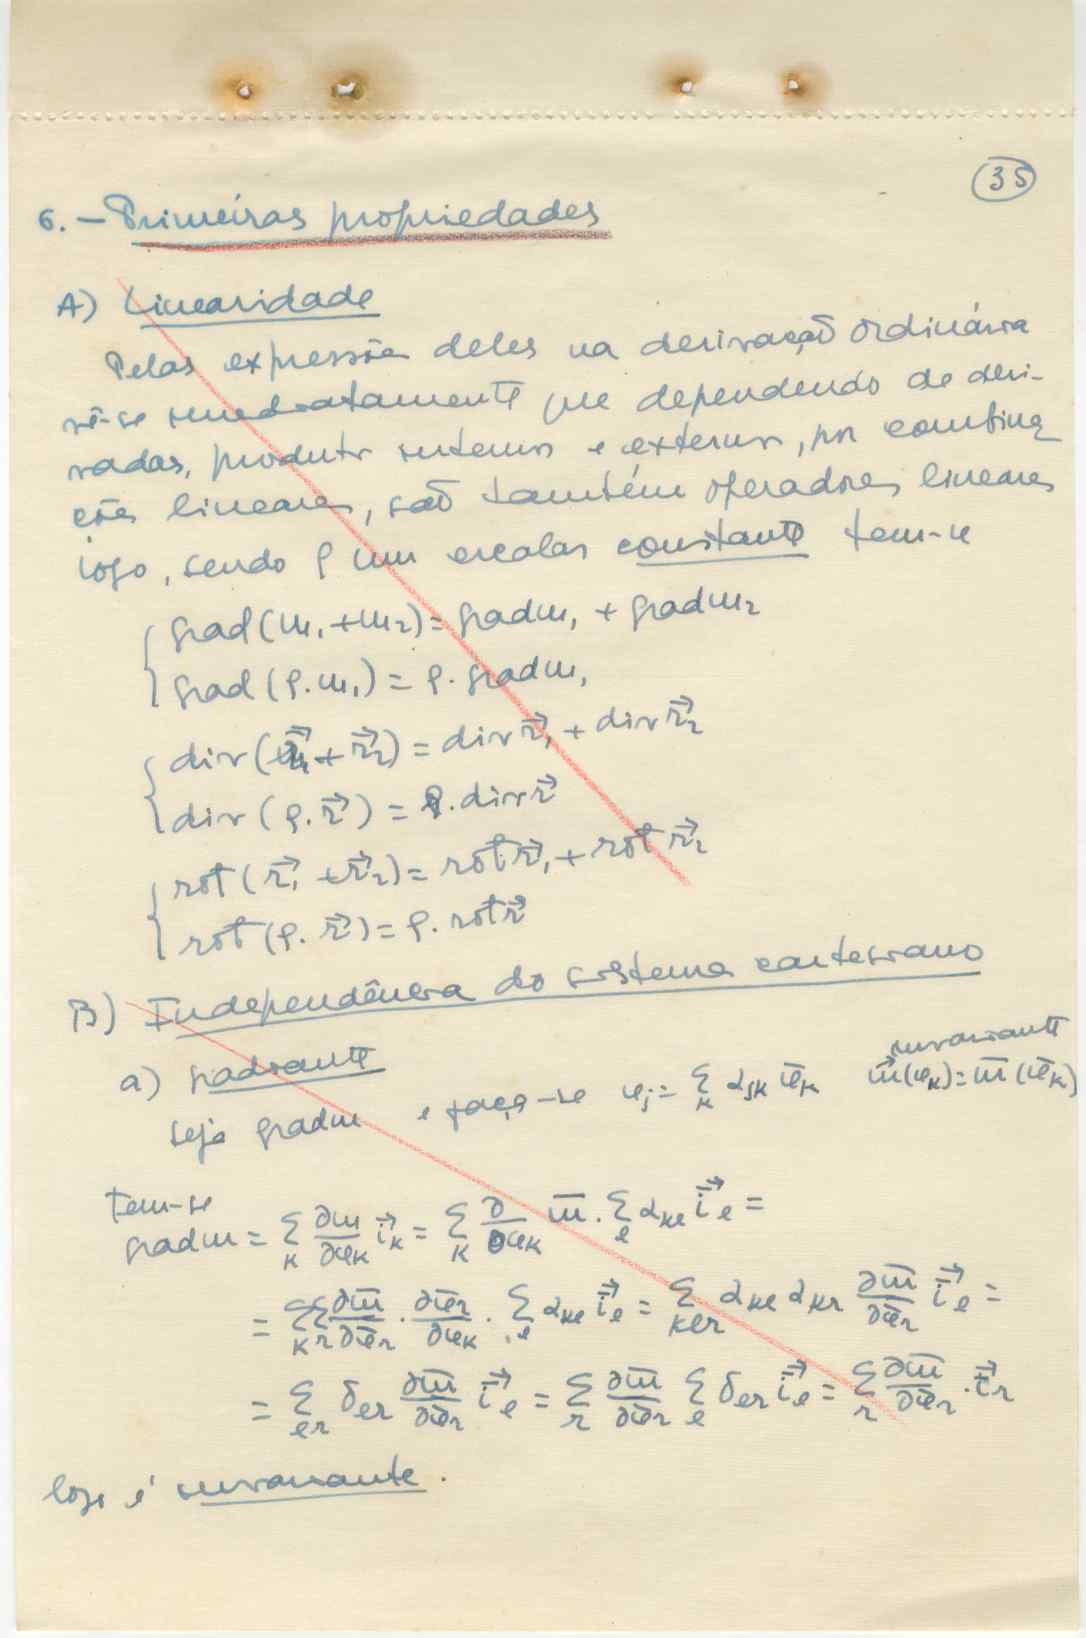 35
6. — Primeiras propriedades
A) Linearidade
Pelas expressões deles na derivação ordinária
vê-se imediatamente que dependendo de deri-
vadas, produtos internos e externos, por combina
ções lineares, são também operadores lineares
logo, sendo ρ um escalar constante tem-se
grad(m₁ + m₂) = grad m₁ + grad m₂
grad(ρ. m₁) = ρ. grad m₁
div(r⃗₁ + r⃗₂) = div r⃗₁ + div r⃗₂
div(ρ. r⃗) = ρ. div r⃗
rot(r⃗₁ + r⃗₂) = rot r⃗₁ + rot r⃗₂
rot(ρ. r⃗) = ρ. rot r⃗
B) Independência do sistema cartesiano
invariante
a) gradiente
Seja grad m e faça-se φⱼ = Σₖ αⱼₖ φ̄ₖ m(φₖ) = m̄(φ̄ₖ)
tem-se
grad m = Σₖ ∂m/∂φₖ i⃗ₖ = Σₖ ∂/∂φₖ m̄ . Σₗ αₖₗ i̅⃗ₗ =
= Σₖ Σᵣ ∂m̄/∂φ̄ᵣ . ∂φ̄ᵣ/∂φₖ . Σₗ αₖₗ i̅⃗ₗ = Σₖₗᵣ αₖₗ αₖᵣ ∂m̄/∂φ̄ᵣ i̅⃗ₗ =
= Σₗᵣ δₗᵣ ∂m̄/∂φ̄ᵣ i̅⃗ₗ = Σᵣ ∂m̄/∂φ̄ᵣ Σₗ δₗᵣ i̅⃗ₗ = Σᵣ ∂m̄/∂φ̄ᵣ . i̅⃗ᵣ
logo é invariante.